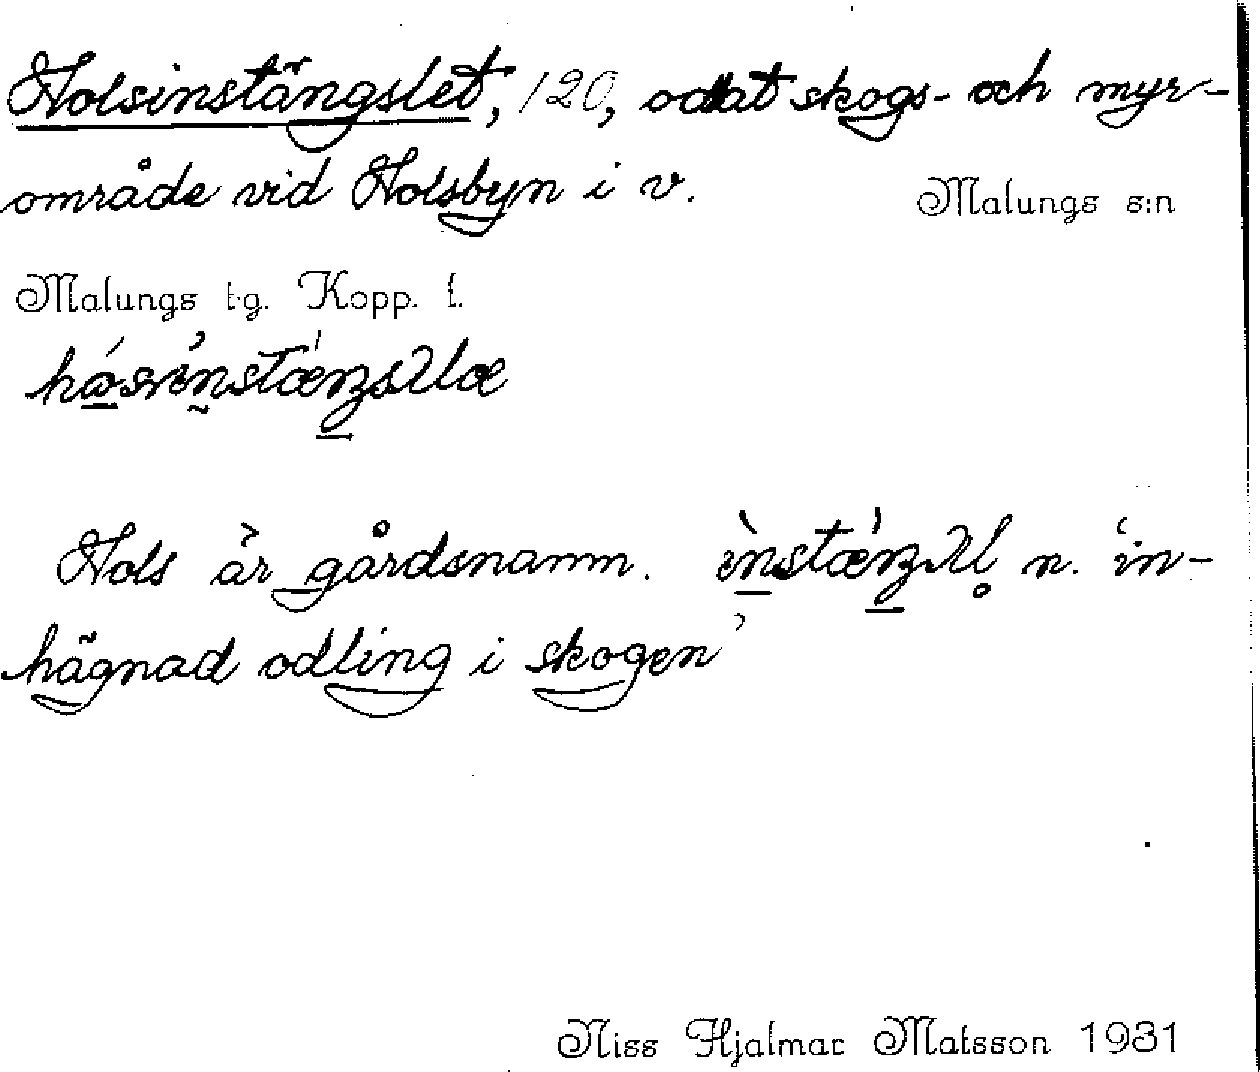 Holsinstängslet, 120, odlat skogs- och myr-
område vid Holsbyn i v. Malungs s:n
Malungs tg. Kopp. l.
Hols är gårdsnamn. n. 'in-
hägnad odling i skogen'
Niss Hjalmar Matsson 1931